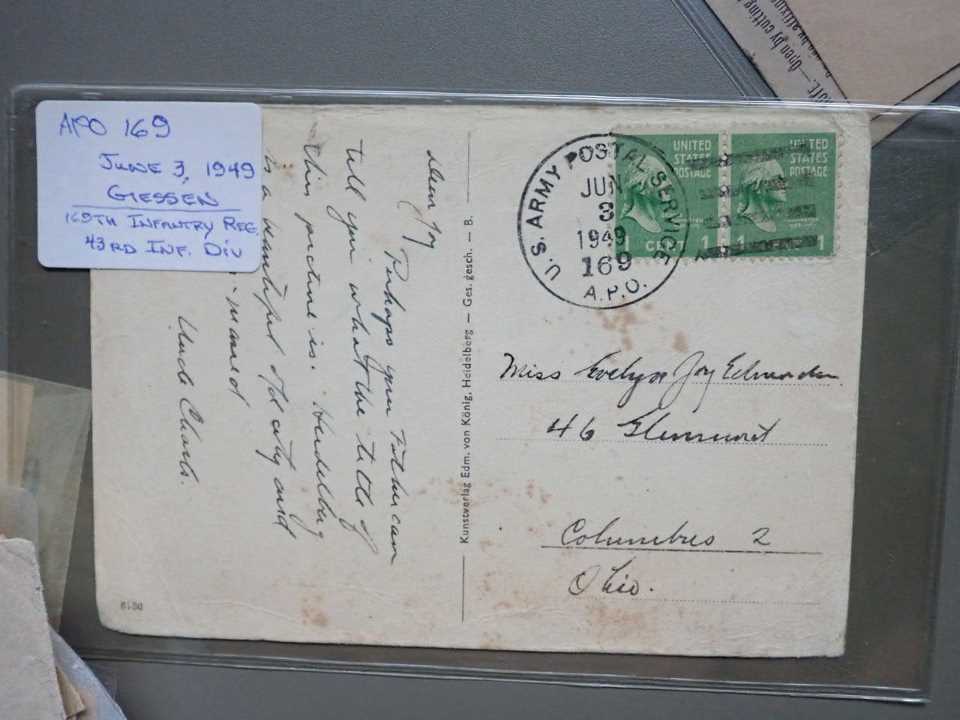 APO 169
JUNE 3, 1949
GIESSEN
169TH INFANTRY REG.
43RD INF. DIV
Dear Joy
Perhaps your Father can
tell you what the title of
this picture is. Heidelberg
is a beautiful old city and
Uncle Charls.
Kunstverlag Edm. von König, Heidelberg — Ges. gesch. — B.
U.S. ARMY POSTAL SERVICE
JUN
3
1949
169
A.P.O.
UNITED STATES POSTAGE
1 CENT 1
UNITED STATES POSTAGE
1
Miss Evelyn Joy Edmonds
46 Glenmont
Columbus 2
Ohio.
Open by cutting